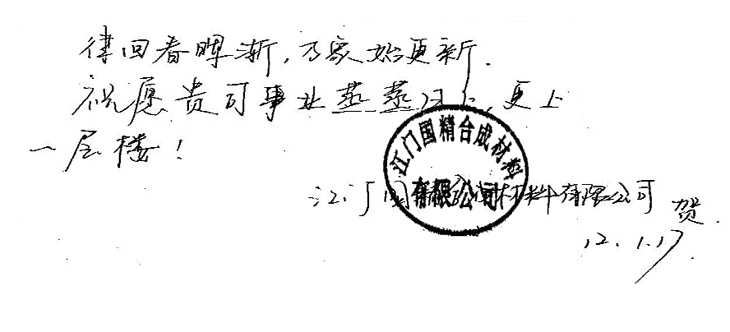 律回春晖渐,万象始更新.
祝愿贵司事业蒸蒸日上,更上
一层楼!
江门国精合成材料
有限公司
江门国材料有限公司 贺
12.1.17